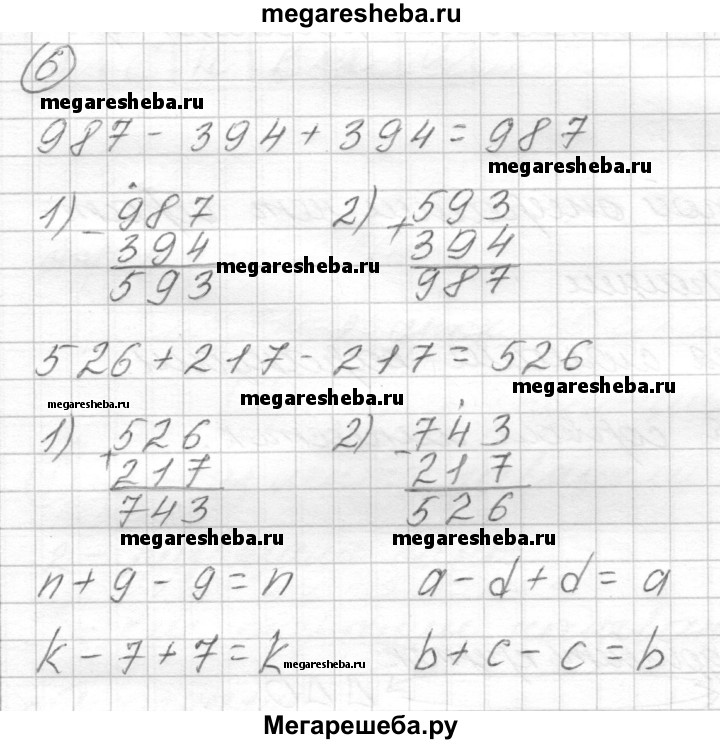 megaresheba.ru
6
megaresheba.ru
987 - 394 + 394 = 987
megaresheba.ru
1) - 987 2) + 593
394 394
593 megaresheba.ru 987
526 + 217 - 217 = 526
megaresheba.ru megaresheba.ru megaresheba.ru
1) + 526 2) - 743
217 217
743 526
megaresheba.ru megaresheba.ru
n + g - g = n a - d + d = a
k - 7 + 7 = k megaresheba.ru b + c - c = b
Мегарешеба.ру